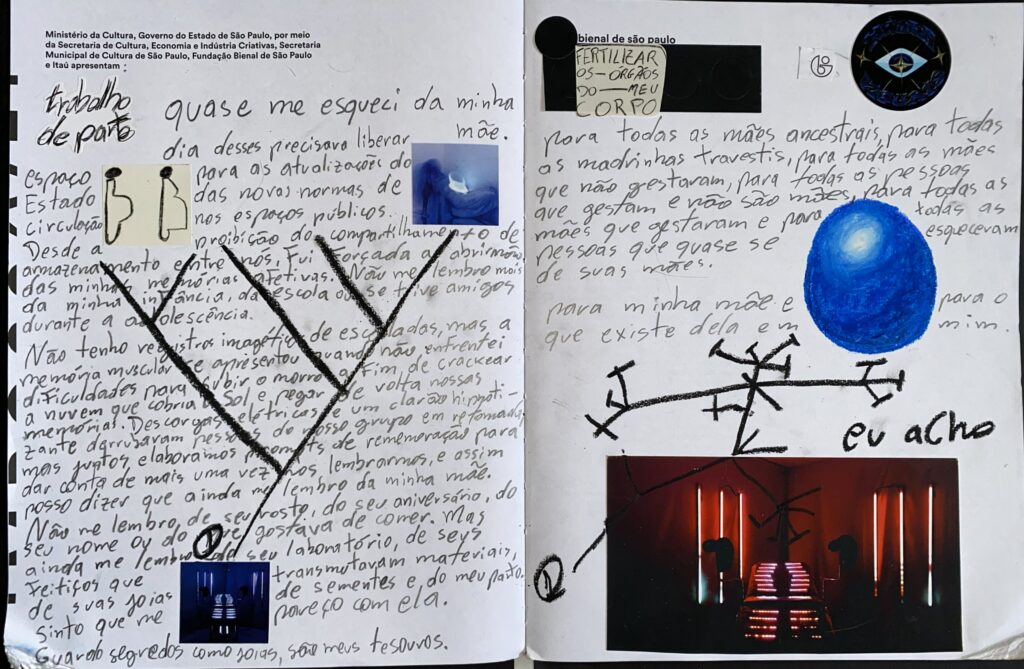 Ministério da Cultura, Governo do Estado de São Paulo, por meio
da Secretaria de Cultura, Economia e Indústria Criativas, Secretaria
Municipal de Cultura de São Paulo, Fundação Bienal de São Paulo
e Itaú apresentam
trabalho
de parto
quase me esqueci da minha
mãe.
dia desses precisava liberar
espaço para as atualizações do
Estado das novas normas de
circulação nos espaços públicos.
Desde a proibição do compartilhamento de
armazenamento entre nós, fui forçada a abrir mão
das minhas memórias afetivas. Não me lembro mais
da minha infância, da escola ou se tive amigos
durante a adolescência.
Não tenho registros imagéticos de escaladas, mas a
memória muscular se apresentou quando não enfrentei
dificuldades para subir o morro a fim de crackear
a nuvem que cobria o Sol e pegar de volta nossas
memórias. Descargas elétricas e um clarão hipnoti-
zante derrubavam pessoas do nosso grupo em retomada,
mas juntos, elaboramos prompts de rememoração para
dar conta de mais uma vez nos lembrarmos, e assim
posso dizer que ainda me lembro da minha mãe.
Não me lembro de seu rosto, do seu aniversário, do
seu nome ou do que gostava de comer. Mas
ainda me lembro do seu laboratório, de seus
feitiços que transmutavam materiais,
de suas joias de sementes e, do meu parto.
Sinto que me pareço com ela.
Guardo segredos como joias, são meus tesouros.
bienal de são paulo
FERTILIZAR
OS ÓRGÃOS
DO MEU
CORPO
para todas as mães ancestrais, para todas
as madrinhas travestis, para todas as mães
que não gestaram, para todas as pessoas
que gestam e não são mães, para todas as
mães que gestaram e para todas as
pessoas que quase se esqueceram
de suas mães.
para minha mãe e para o
que existe dela em mim.
eu acho